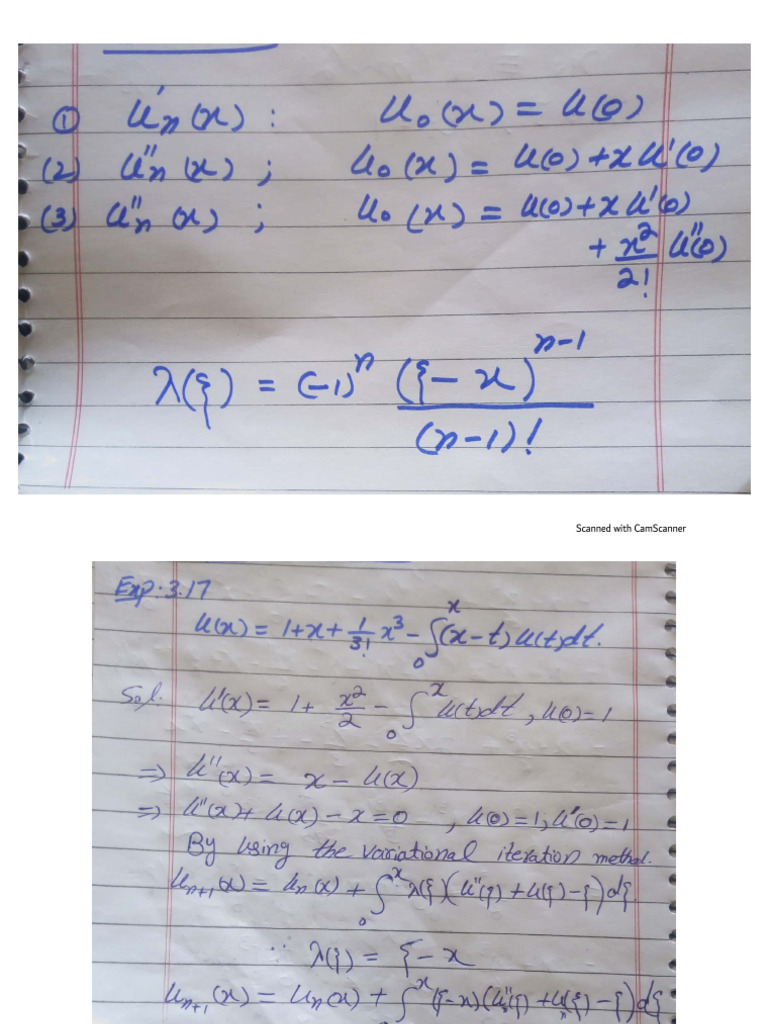 ① u'ₙ(x) : u₀(x) = u(0)
(2) u''ₙ(x) ; u₀(x) = u(0) + x u'(0)
(3) u''ₙ(x) ; u₀(x) = u(0) + x u'(0)
+ x²/2! u''(0)
λ(ξ) = (-1)ⁿ (ξ - x)ⁿ⁻¹/(n-1)!
Scanned with CamScanner
Exp: 3.17
u(x) = 1 + x + 1/3! x³ - ∫₀ˣ (x-t) u(t)dt.
Sol. u'(x) = 1 + x²/2 - ∫₀ˣ u(t)dt, u(0)=1
⇒ u''(x) = x - u(x)
⇒ u''(x) + u(x) - x = 0 , u(0)=1, u'(0)=1
By using the variational iteration method.
uₙ₊₁(x) = uₙ(x) + ∫₀ˣ λ(ξ)(u''(ξ) + u(ξ) - ξ)dξ.
∵ λ(ξ) = ξ - x
uₙ₊₁(x) = uₙ(x) + ∫ˣ (ξ-x)(uₙ''(ξ) + uₙ(ξ) - ξ)dξ